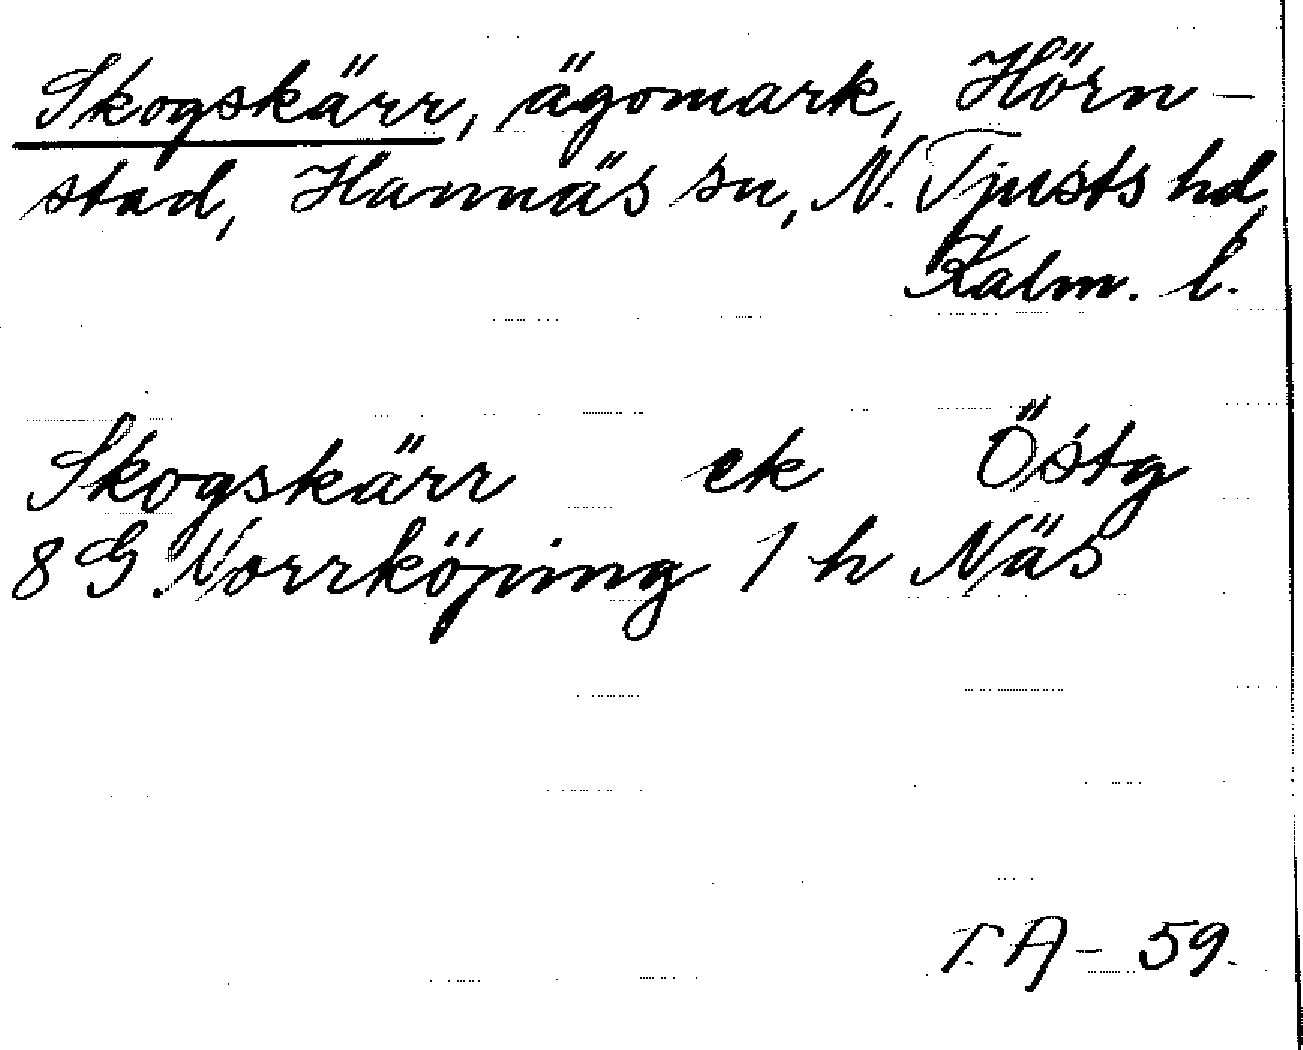 Skogskärr, ägomark, Hörn-
stad, Hannäs sn, N. Tjusts hd,
Kalm. l.
Skogskärr ek Östg
8 G Norrköping 1 h Näs
T.A-59.